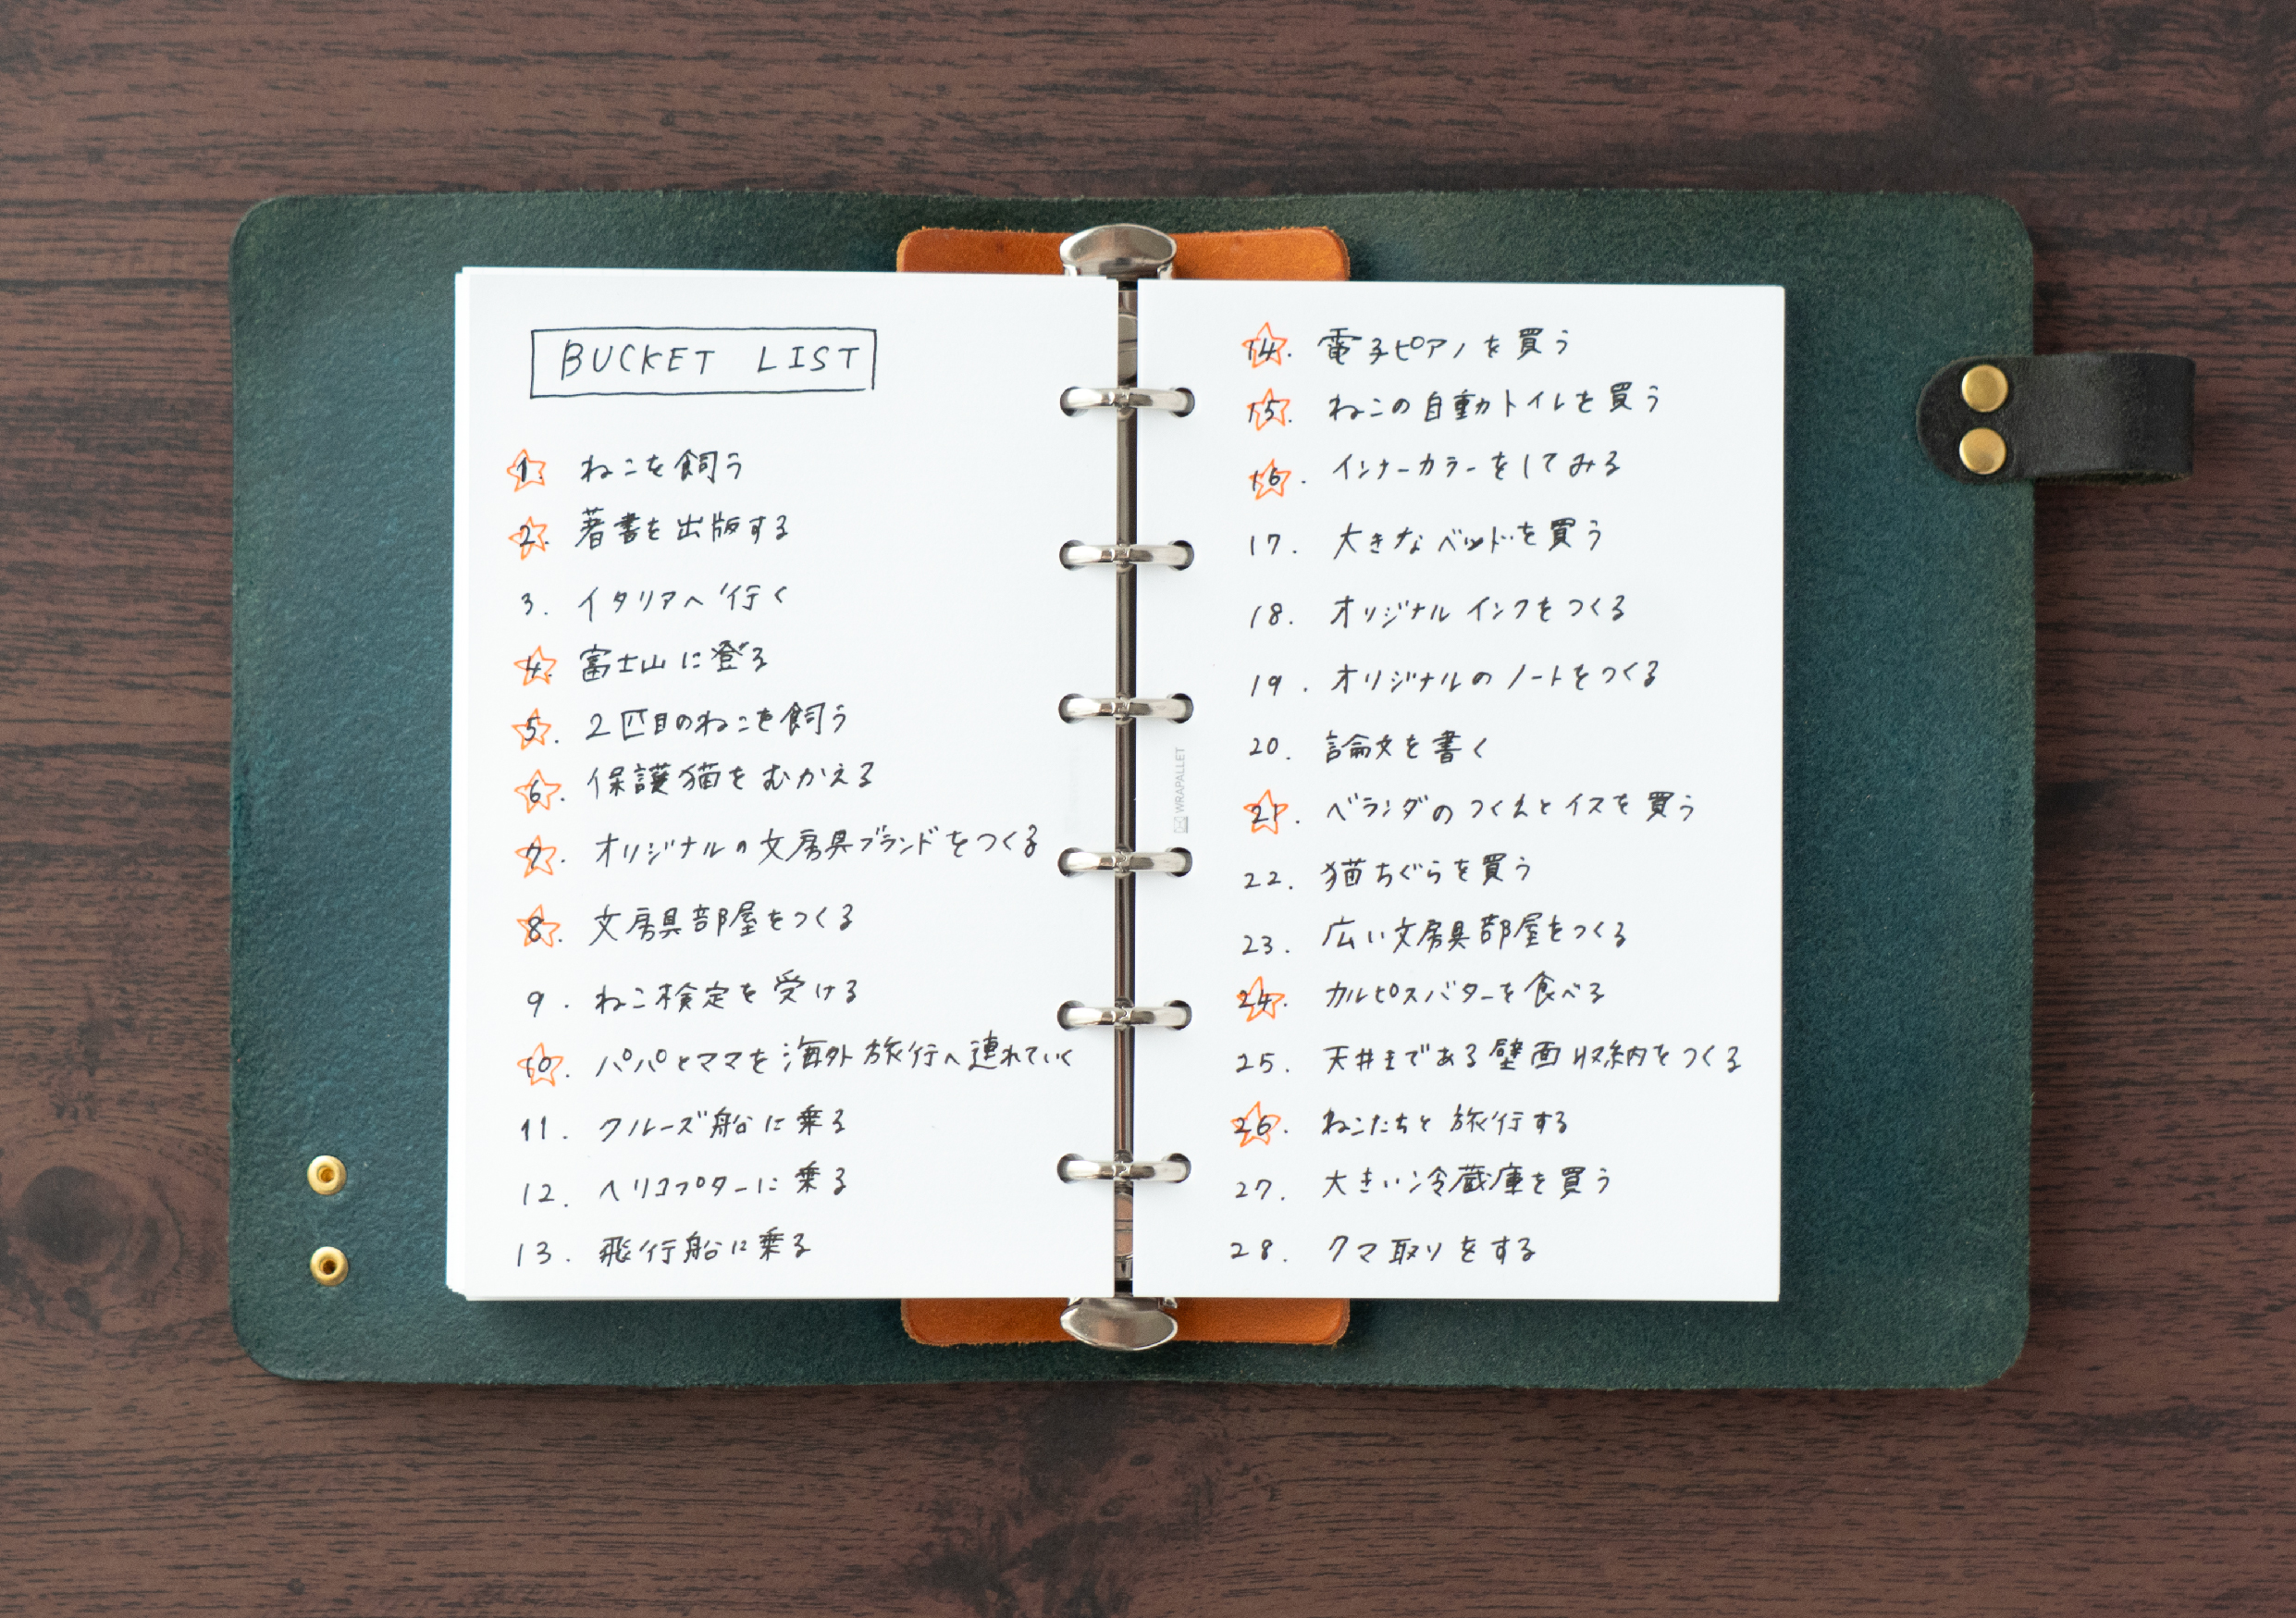 BUCKET LIST
1. ねこを飼う
2. 著書を出版する
3. イタリアへ行く
4. 富士山に登る
5. 2匹目のねこを飼う
6. 保護猫をむかえる
7. オリジナルの文房具ブランドをつくる
8. 文房具部屋をつくる
9. ねこ検定を受ける
10. パパとママを海外旅行へ連れていく
11. クルーズ船に乗る
12. ヘリコプターに乗る
13. 飛行船に乗る
WRAPALLET
14. 電子ピアノを買う
15. ねこの自動トイレを買う
16. インナーカラーをしてみる
17. 大きなベッドを買う
18. オリジナルインクをつくる
19. オリジナルのノートをつくる
20. 論文を書く
21. ベランダのつくえとイスを買う
22. 猫ちぐらを買う
23. 広い文房具部屋をつくる
24. カルピスバターを食べる
25. 天井まである壁面収納をつくる
26. ねこたちと旅行する
27. 大きい冷蔵庫を買う
28. クマ取りをする